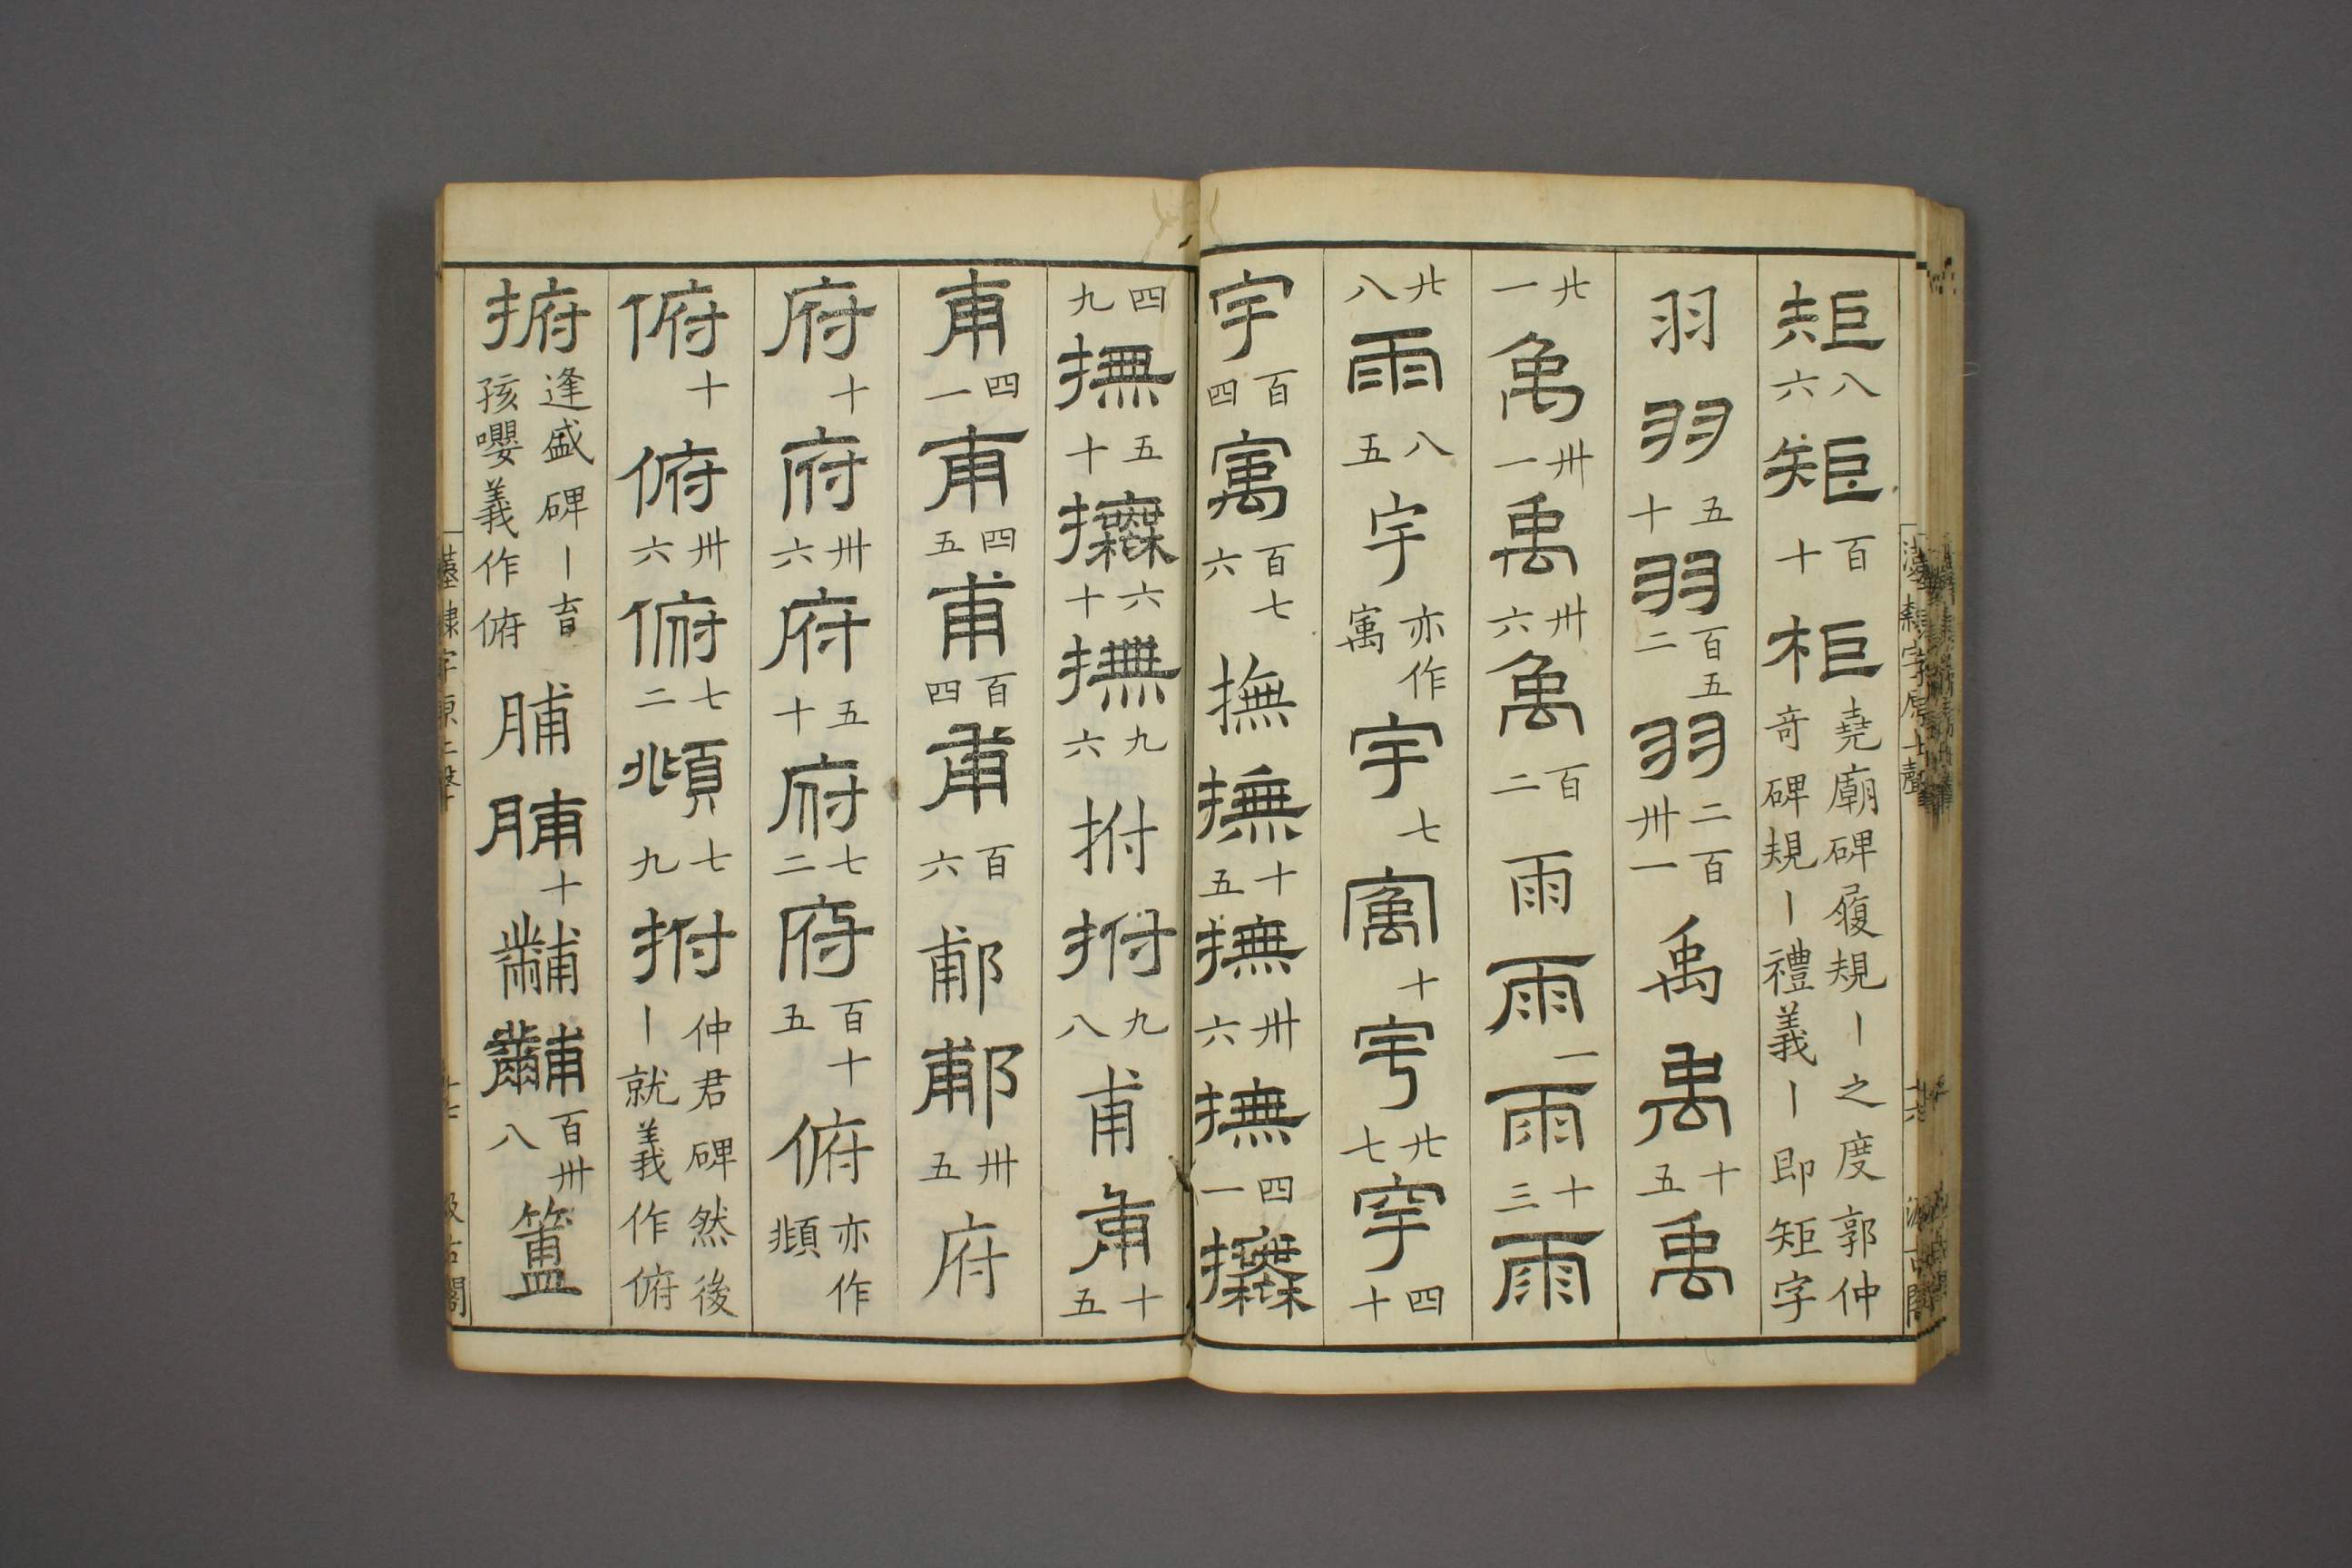 矩八六矩百十柜堯廟碑履規丨之度郭仲奇碑規丨禮義丨即矩字
羽羽五十羽百五二羽二百卅一禹禹十五禹
廿一禹卅一禹卅六禹百二雨雨一雨十三雨
廿八雨八五宇亦作寓宇七寓十宇廿七宇四十
宇百四寓百七六撫撫十五撫卅六撫四一攈
四九撫五十攈六十撫九六拊拊九八甫甫十五
甫四一甫四五甫百四甫百六郙郙卅五府
府十府卅六府五十府七二府百十五俯亦作頫
俯十俯卅六俯七二頫七九拊仲君碑然後丨就義作俯
捬逢盛碑丨育孩嚶義作俯脯脯十黼黼百卅八簠
漢隸字原上聲 十六 汲古閣
漢隸字原上聲 十七 汲古閣